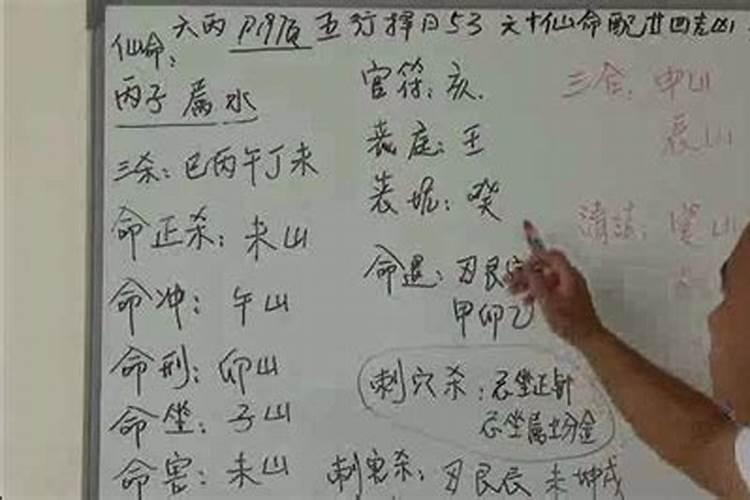 六丙 五行择日53 六十仙命配廿四吉凶
仙命:
丙子 属水
三杀: 巳丙午丁未
命正杀: 未山
命冲: 午山
命刑: 卯山
命坐: 子山
命害: 未山
官符: 亥.
丧庭: 壬
癸
命退:
甲卯乙
刺穴杀: 忌坐正针
忌坐属土分金
刺 杀: 艮辰 未坤戌
三合: 申山
辰山
山